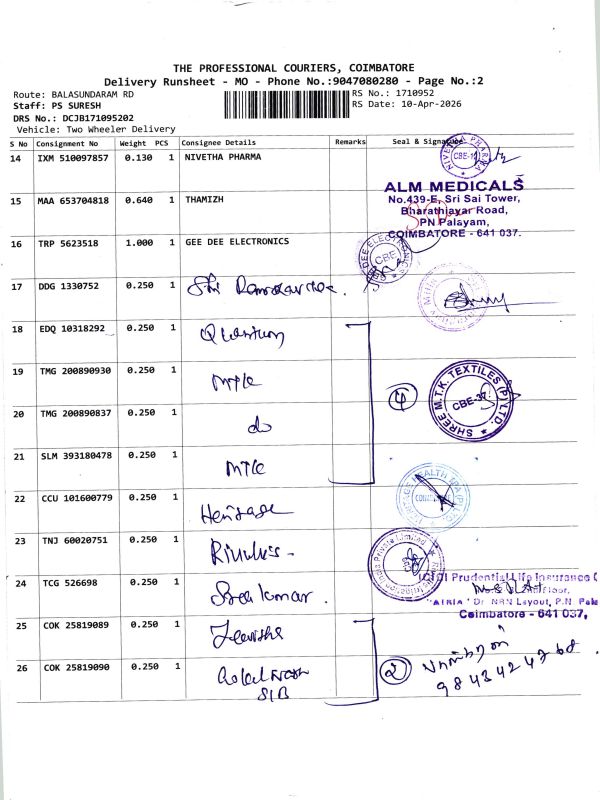 THE PROFESSIONAL COURIERS, COIMBATORE
Delivery Runsheet - MO - Phone No.:9047080280 - Page No.:2
Route: BALASUNDARAM RD
RS No.: 1710952
Staff: PS SURESH
RS Date: 10-Apr-2026
DRS No.: DCJB171095202
Vehicle: Two Wheeler Delivery
S No Consignment No Weight PCS Consignee Details Remarks Seal & Signature
14 IXM 510097857 0.130 1 NIVETHA PHARMA
NIVETHA PHARMA
CBE-12
15 MAA 653704818 0.640 1 THAMIZH
ALM MEDICALS
No.439-E, Sri Sai Tower,
Bharathiayar Road,
PN Palayam,
COIMBATORE - 641 037.
16 TRP 5623518 1.000 1 GEE DEE ELECTRONICS
CBE
17 DDG 1330752 0.250 1 Sri
18 EDQ 10318292 0.250 1 Quantum
19 TMG 200890930 0.250 1 MTK
4
SHREE M.T.K. TEXTILES (P) LTD.
CBE-37
20 TMG 200890837 0.250 1 do
21 SLM 393180478 0.250 1 MTK
22 CCU 101600779 0.250 1 Heritage
23 TNJ 60020751 0.250 1
24 TCG 526698 0.250 1 Sree Kumar.
ICICI Prudential Life Insurance
"AIRIA" Dr. NRN Layout, P.N. Pala
Coimbatore - 641 037,
25 COK 25819089 0.250 1
26 COK 25819090 0.250 1
SIB
2
9843424768